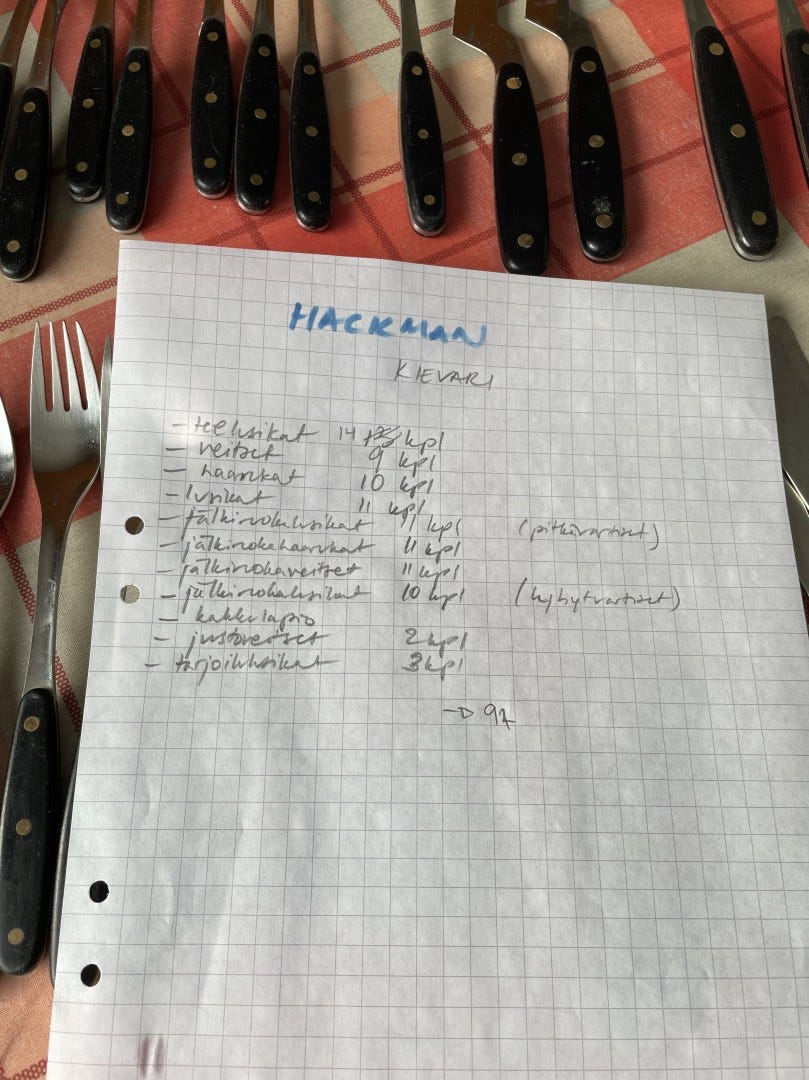 HACKMAN
KIEVARI
- teelusikat 14 kpl
- veitset 9 kpl
- haarukat 10 kpl
- lusikat 11 kpl
- jälkiruokalusikat 11 kpl (pitkävartiset)
- jälkiruokahaarukat 11 kpl
- jälkiruokaveitset 11 kpl
- jälkiruokalusikat 10 kpl (lyhytvartiset)
- kakkulapio
- juustoveitset 2 kpl
- tarjoilulusikat 3 kpl
→ 97